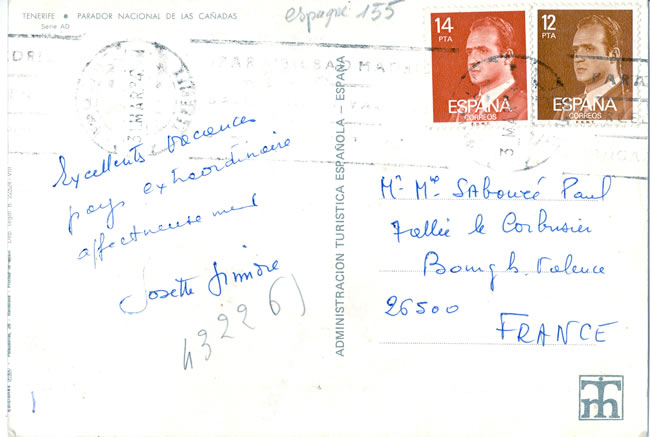 TENERIFE • PARADOR NACIONAL DE LAS CAÑADAS
Serie AD
espagne 155
14
PTA
ESPAÑA
CORREOS
12
PTA
ESPAÑA
CORREOS
31 MAR
Excellents vacances
pays extraordinaire
affectueusement
Josette
43226
ADMINISTRACION TURISTICA ESPAÑOLA – ESPAÑA
Mr Mme Sabouré Paul
Allée le Corbusier
Bourg l. Valence
26500
FRANCE